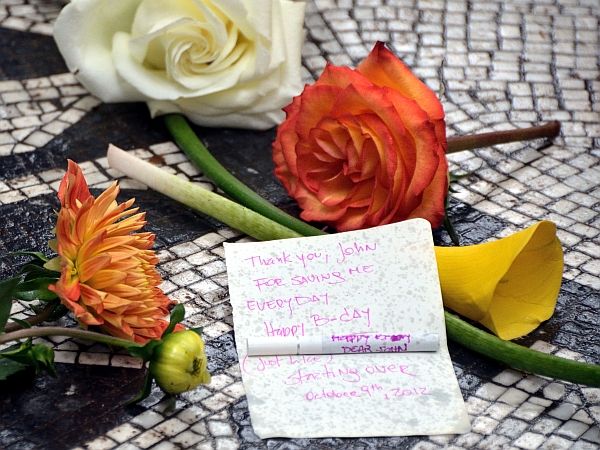 Thank you, John
FOR SAVING ME
EVERYDAY
Happy B-day
Happy B-day
DEAR JOHN
(Just Like)
Starting over
October 9th, 2012